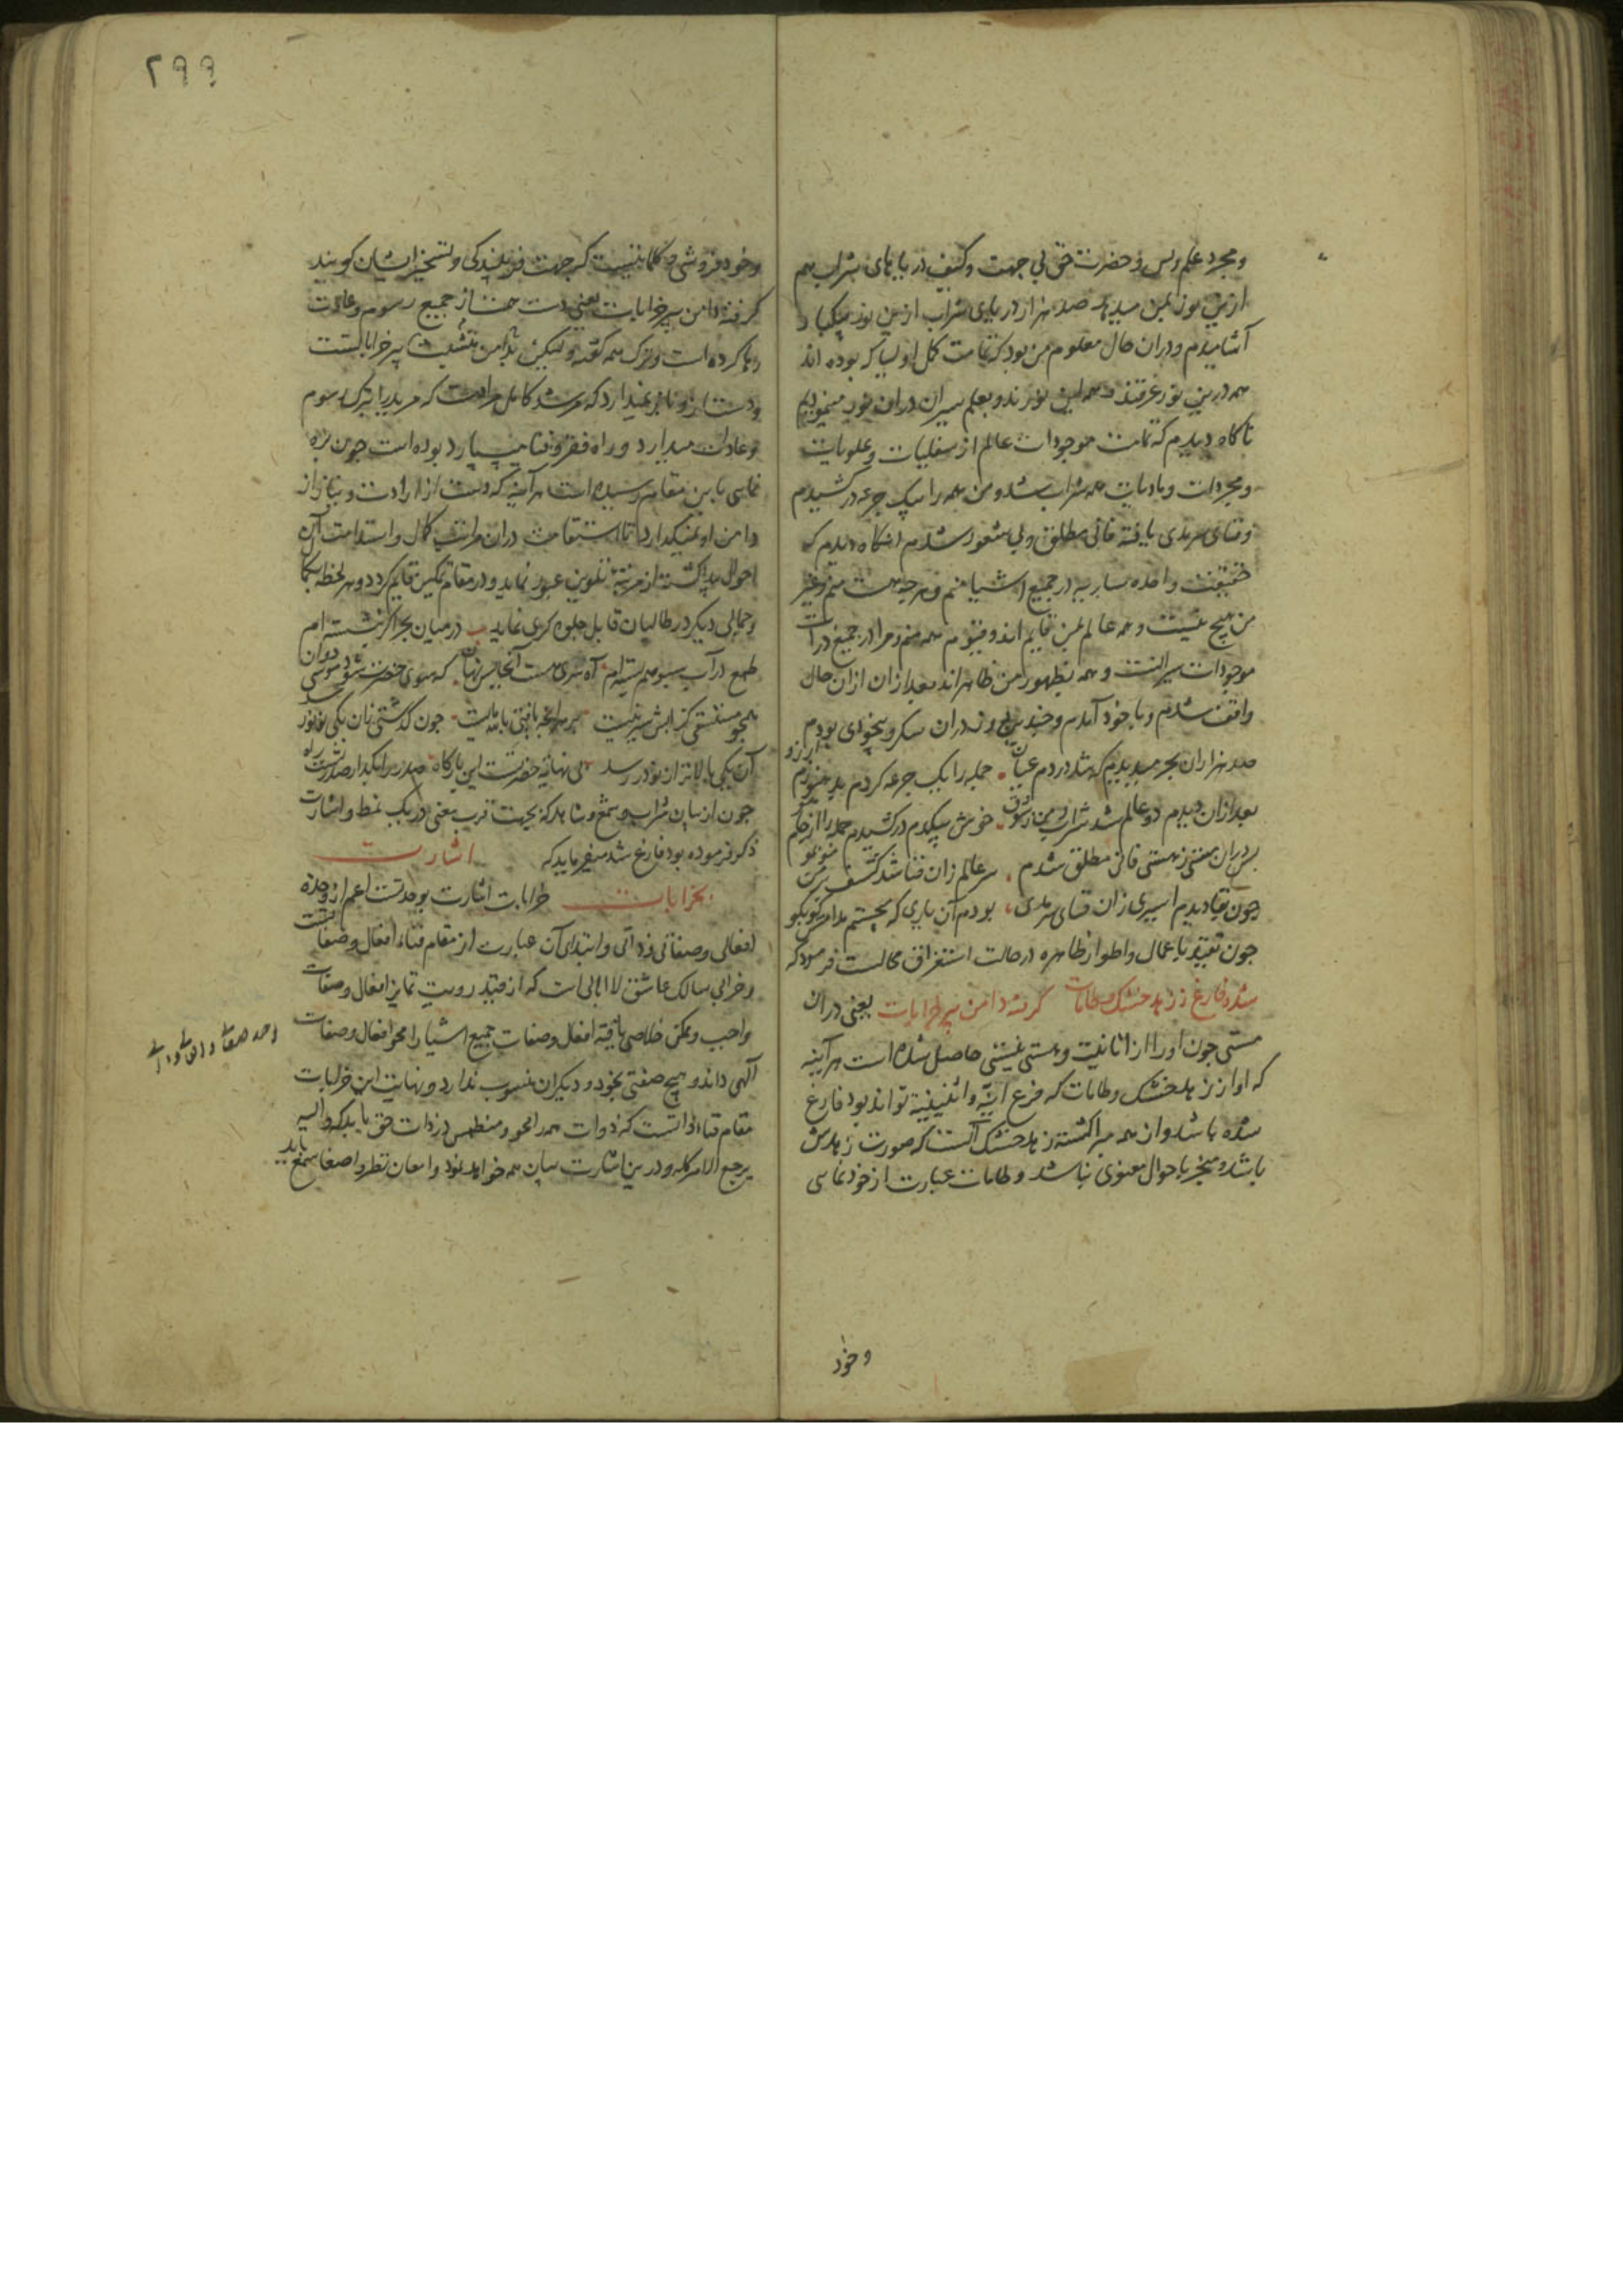 ومجرد علم وبس و حضرت حق بی جهت وکیف دریاهای شراب هم
ازین نور بمن میدهد صد هزار دریای شراب ازین نور بیکبار
آشامیدم ودران حال معلوم من بود که تمامت کمل اولیا که بوده اند
همه درین نور غرقند و همه این نورند و بعلم سیران دران نور مینمودیم
ناکاه دیدم که تمامت موجودات عالم از سفلیات وعلویات
ومجردات ومادیات همه شراب شد ومن همه را بیک جرعه درکشیدم
وفنای سرمدی یافته فانی مطلق وبی شعور شدم انکاه دیدم که
حقیقت واحده ساریه در جمیع اشیا منم وهرچه هست منم وغیر
من هیچ نیست وهمه عالم بمن قایم اند وقیوم همه منم ومرا در جمیع ذرات
موجودات سیرانست وهمه بظهور من ظاهراند بعد ازان ازان حال
واقف شدم وباخود آمدم وچندین روز دران سکر وبیخودی بودم
صد هزاران بحر میدیدم که شد دردم عیان جمله را یک جرعه کردم
بعد ازان دیدم دو عالم شد شراب خوش بیکدم درکشیدم جمله را
پس دران مستی ز هستی فانی مطلق شدم سر عالم زان فنا شد کشف بر من
چون بقا دیدم اسیری زان فنای سرمدی بودم آن یاری که بجستم مدام
چون تقید باعمال واطوار ظاهره درحالت استغراق محالست فرمود که
شده فارغ ز زهد خشک وطامات گرفته دامن پیر خرابات یعنی دران
مستی چون اورا از انانیت وهستی نیستی حاصل شده است هرآینه
که او از زهد خشک وطامات که فرع انیّه واثنینیة تواند بود فارغ
شده باشد وازهمه مبرا کشته زهد خشک آنست که صورت زهدش
باشد ومنجر باحوال معنوی نباشد وطامات عبارت از خود نمایی
وخود
۲۹۹
وخود فروشی وکلماتیست که جهت فریبندکی وتسخیر ایشان کویند
گرفته دامن پیر خرابات یعنی دست از جمیع رسوم وعادت
رها کرده است وترک همه کفته ولیکن بدامن پیر خراباتست
ودست ازو باز نمیدارد که مرشد کامل مرادست که مرید را بترک رسوم
وعادات میدارد و راه فقر وفنا میسپارد بوده است چون
باین مقام رسیده است هرآینه که دست از ارادت ونیاز از
دامن او نمیکذارد تا استقامت دران مراتب کمال واستدامت آن
احوال پیدا کشته از مرتبه تلوین عبور نماید ودر مقام تمکین قایم کردد وهر لحظه بکمال
وجمالی دیکر در طالبان قابل جلوه کری نماید درمیان بحر اگر بنشسته ام
طمع در آب سبو هم بسته ام
همچو مستسقی کزابش سیر نیست بر هر آنچه یافتی بالله مایست چون گذشتی زان یکی
آن یکی بالاتر ازان در رسد بی نهایت حضرتست این بارکاه صدر را بکذار صدر تست راه
چون از بیان شراب وشمع وشاهد که بجهت قرب معنی در یک نمط واشارت
ذکر فرموده بود فارغ شد میفرماید که اشارت
بخرابات خرابات اشارت بوحدتست اعم از وحدة
افعالی وصفاتی وذاتی وابتدای آن عبارت از مقام فناء افعال وصفاتست
وخراباتی سالک عاشق لاابالی است که از قید رویت تمایز افعال وصفات
واجب وممکن خلاصی یافته افعال وصفات جمیع اشیا را محو افعال وصفات
الهی داند وهیچ صفتی بخود ودیکران منسوب ندارد ونهایت این خرابات
مقام فناء ذاتست که ذوات همه را محو ومنطمس در ذات حق یابد که والیه
یرجع الامر کله ودرین اشارت بیان همه خواهد نمود وامعان نظر واصغا سمع باید